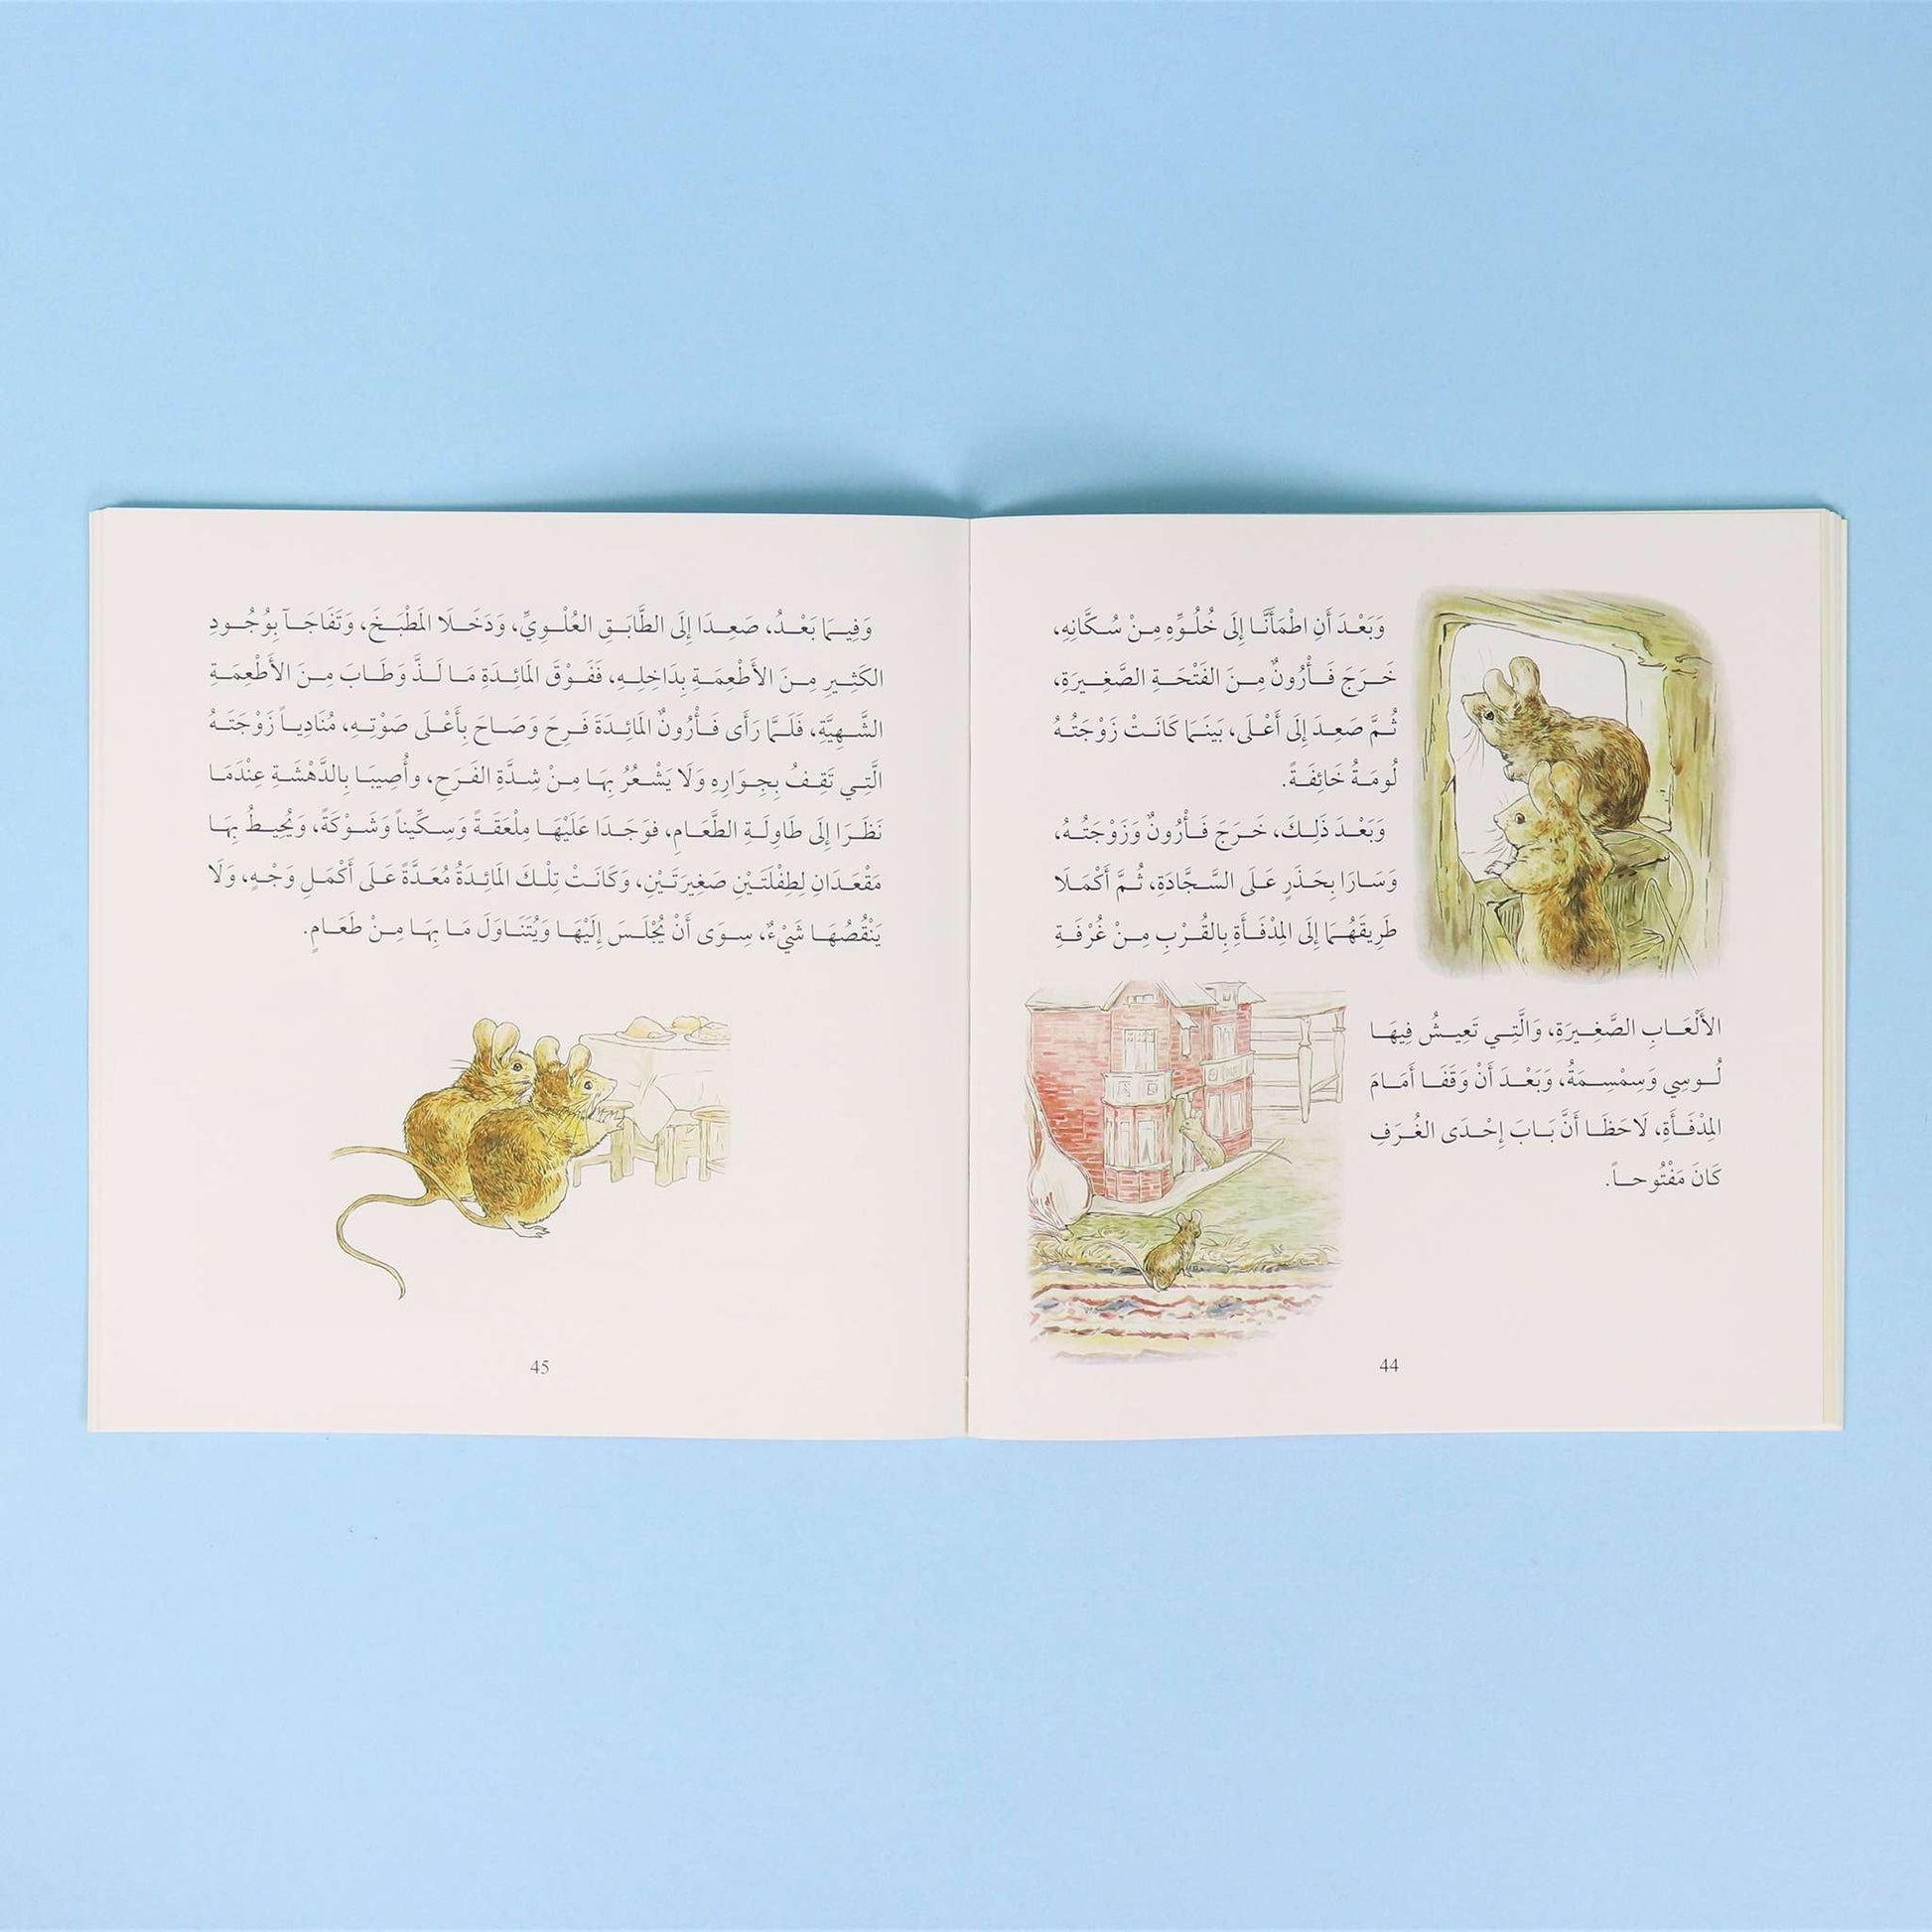 وَبَعْدَ أَنِ اطْمَأَنَّا إِلَى خُلُوِّهِ مِنْ سُكَّانِهِ،
خَرَجَ فَأْرُونٌ مِنَ الفَتْحَةِ الصَّغِيرَةِ،
ثُمَّ صَعِدَ إِلَى أَعْلَى، بَيْنَمَا كَانَتْ زَوْجَتُهُ
لُومَةُ خَائِفَةً.
وَبَعْدَ ذَلِكَ، خَرَجَ فَأْرُونٌ وَزَوْجَتُهُ،
وَسَارَا بِحَذَرٍ عَلَى السَّجَّادَةِ، ثُمَّ أَكْمَلَا
طَرِيقَهُمَا إِلَى المِدْفَأَةِ بِالقُرْبِ مِنْ غُرْفَةِ
الأَلْعَابِ الصَّغِيرَةِ، وَالَّتِي تَعِيشُ فِيهَا
لُوسِي وَسِمْسِمَةُ، وَبَعْدَ أَنْ وَقَفَا أَمَامَ
المِدْفَأَةِ، لَاحَظَا أَنَّ بَابَ إِحْدَى الغُرَفِ
كَانَ مَفْتُوحاً.
44
وَفِيمَا بَعْدُ، صَعِدَا إِلَى الطَّابَقِ العُلْوِيِّ، وَدَخَلَا المَطْبَخَ، وَتَفَاجَآ بِوُجُودِ
الكَثِيرِ مِنَ الأَطْعِمَةِ بِدَاخِلِهِ، فَفَوْقَ المَائِدَةِ مَا لَذَّ وَطَابَ مِنَ الأَطْعِمَةِ
الشَّهِيَّةِ، فَلَمَّا رَأَى فَأْرُونٌ المَائِدَةَ فَرِحَ وَصَاحَ بِأَعْلَى صَوْتِهِ، مُنَادِياً زَوْجَتَهُ
الَّتِي تَقِفُ بِجِوَارِهِ وَلَا يَشْعُرُ بِهَا مِنْ شِدَّةِ الفَرَحِ، وأُصِيبَا بِالدَّهْشَةِ عِنْدَمَا
نَظَرَا إِلَى طَاوِلَةِ الطَّعَامِ، فوَجَدَا عَلَيْهَا مِلْعَقَةً وَسِكِّيناً وَشَوْكَةً، وَيُحِيطُ بِهَا
مَقْعَدَانِ لِطِفْلَتَيْنِ صَغِيرَتَيْنِ، وَكَانَتْ تِلْكَ المَائِدَةُ مُعَدَّةً عَلَى أَكْمَلِ وَجْهٍ، وَلَا
يَنْقُصُهَا شَيْءٌ، سِوَى أَنْ يُجْلَسَ إِلَيْهَا وَيُتَنَاوَلَ مَا بِهَا مِنْ طَعَامٍ.
45